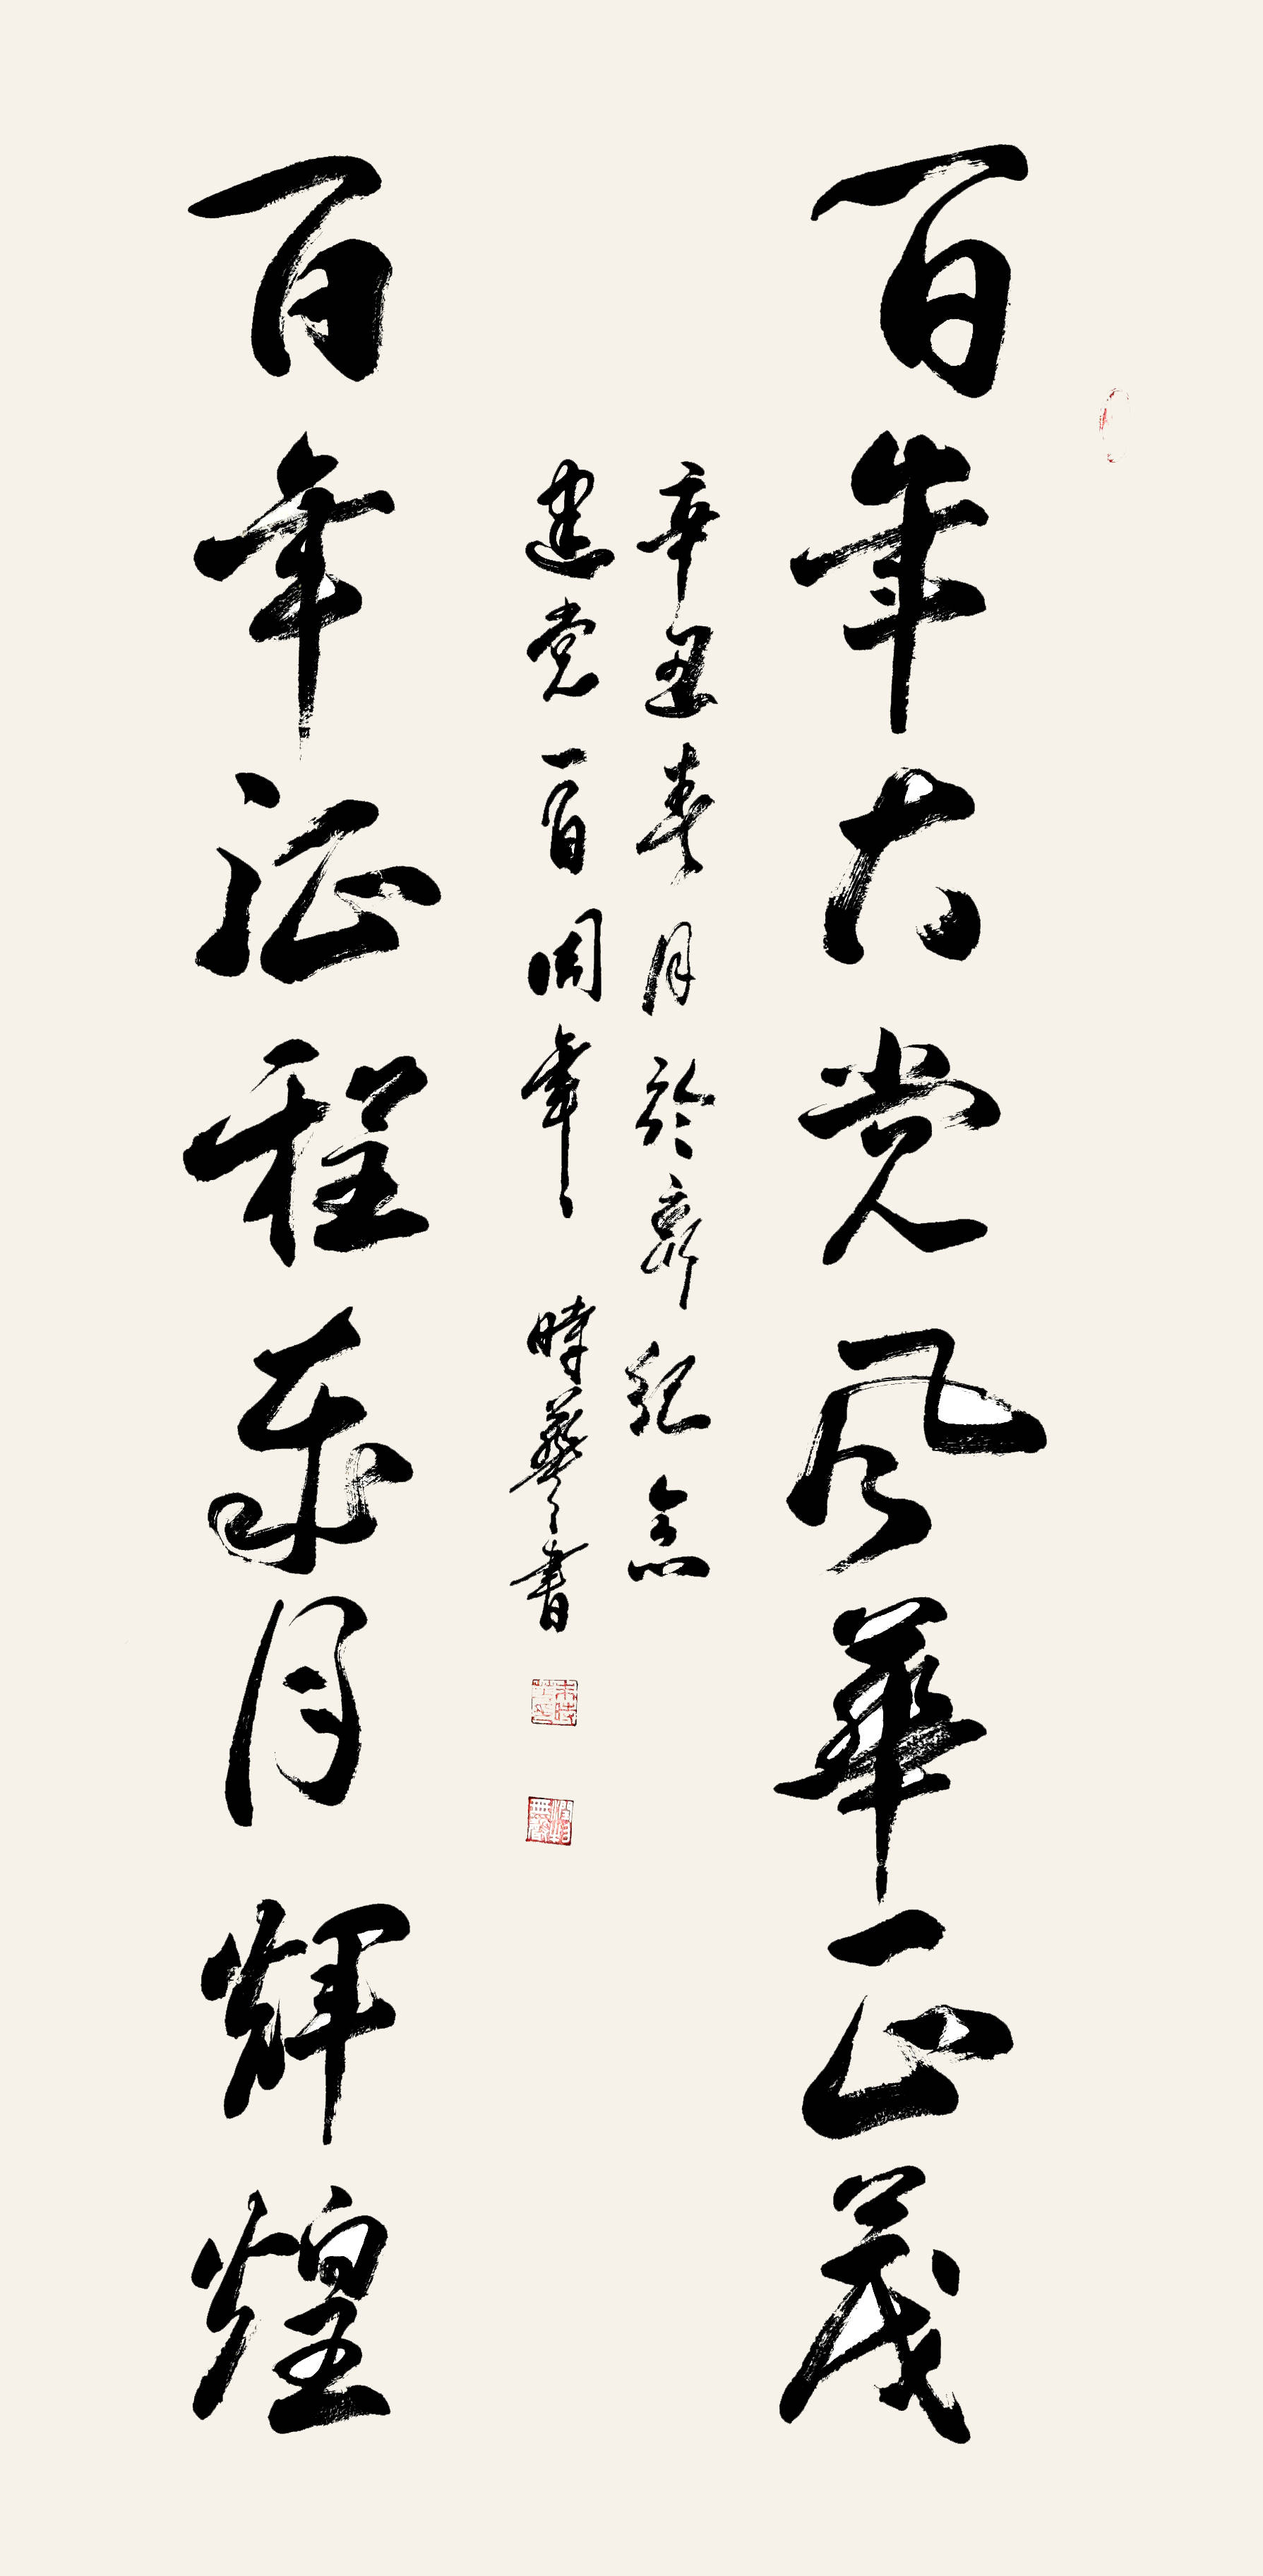 百年大党风華正茂
辛丑春月於齊紀念
建党一百周年 時書
百年征程歲月輝煌